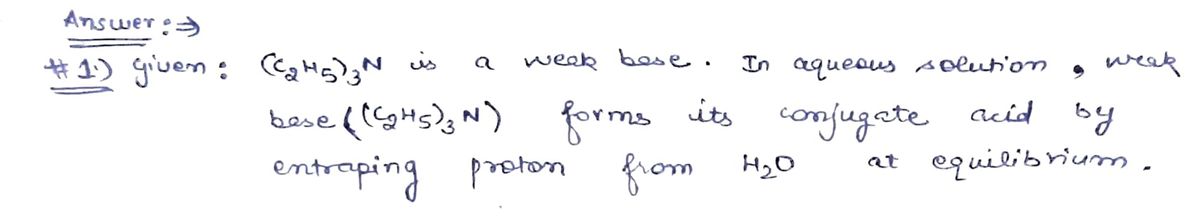 Answer :⇒
# 1.) given : (C₂H₅)₃N is a weak base. In aqueous solution, weak
base ((C₂H₅)₃N) forms its conjugate acid by
entraping proton from H₂O at equilibrium.